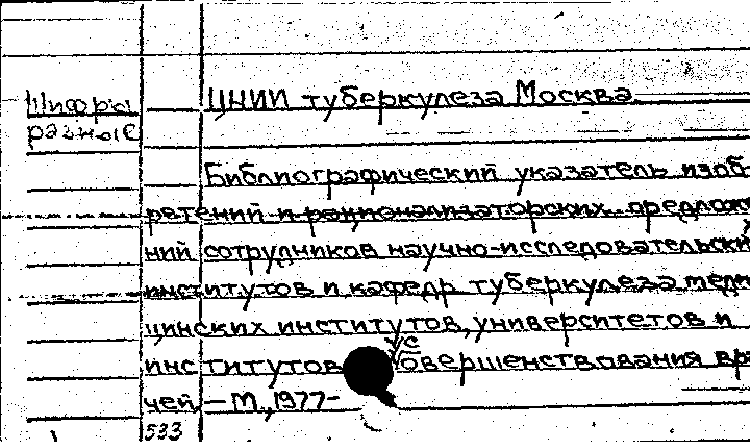 Шифры
разные
ЦНИИ туберкулеза Москва
Библиографический указатель изоб-
ретений и рационализаторских предлож
ний сотрудников научно-исследовательски
институтов и кафедр туберкулеза меди
цинских институтов, университетов и
институтов усовершенствования вра
чей. — М., 1977-
533